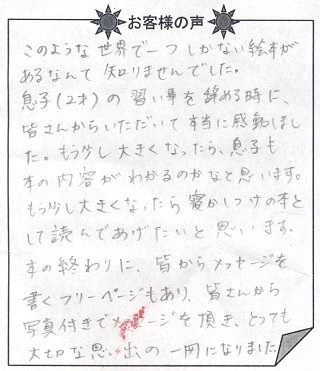 お客様の声
このような世界で一つしかない絵本が
あるなんて知りませんでした。
息子(2才)の習い事を辞める時に、
皆さんからいただいて本当に感動しまし
た。もう少し大きくなったら、息子も
本の内容がわかるのかなと思います。
もう少し大きくなったら寝かしつけの本と
して読んであげたいと思います。
本の終わりに、皆からメッセージを
書くフリーページもあり、皆さんから
写真付きでメッセージを頂き、とっても
大切な思い出の一冊になりました